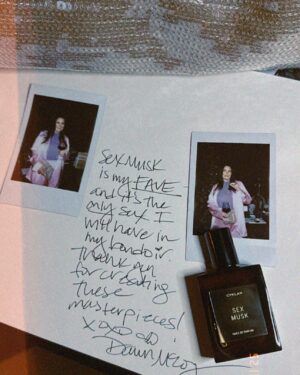 Sex Musk
is my FAVE
and it's the
only sex I
will have in
my bondoir.
Thank you
for creating
these
masterpieces!
xoxo
Dawn
SEX
MUSK